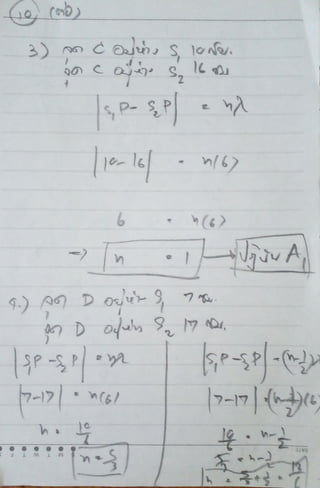 10 (ต่อ)
3) จุด C อยู่ห่าง S₁ 10 ซม.
จุด C อยู่ห่าง S₂ 16 ซม.
|S₁P - S₂P| = nλ
|10-16| = n(6)
6 = n(6)
⇒ n = 1 → ปฏิบัพ A₁
4.) จุด D อยู่ห่าง S₁ 7 ซม.
จุด D อยู่ห่าง S₂ 17 ซม.
|S₁P - S₂P| = nλ
|7-17| = n(6)
n = 10/6
n = 5/3
|S₁P - S₂P| = (n-1/2)λ
|7-17| = (n-1/2)(6)
10/6 = n-1/2
5/3 = n-1/2
n = 5/3 + 1/2 = 13/6